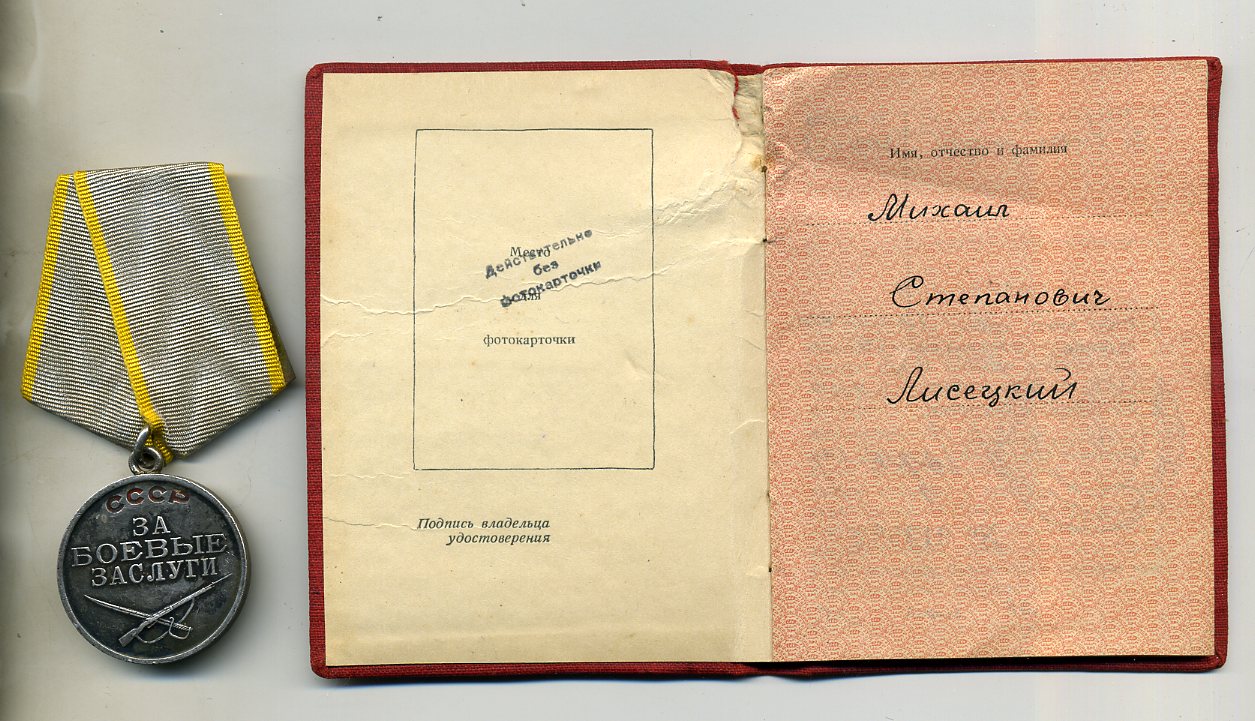 СССР
ЗА
БОЕВЫЕ
ЗАСЛУГИ
Место
для
фотокарточки
Действительно
без
фотокарточки
Подпись владельца
удостоверения
Имя, отчество и фамилия
Михаил
Степанович
Лисецкий